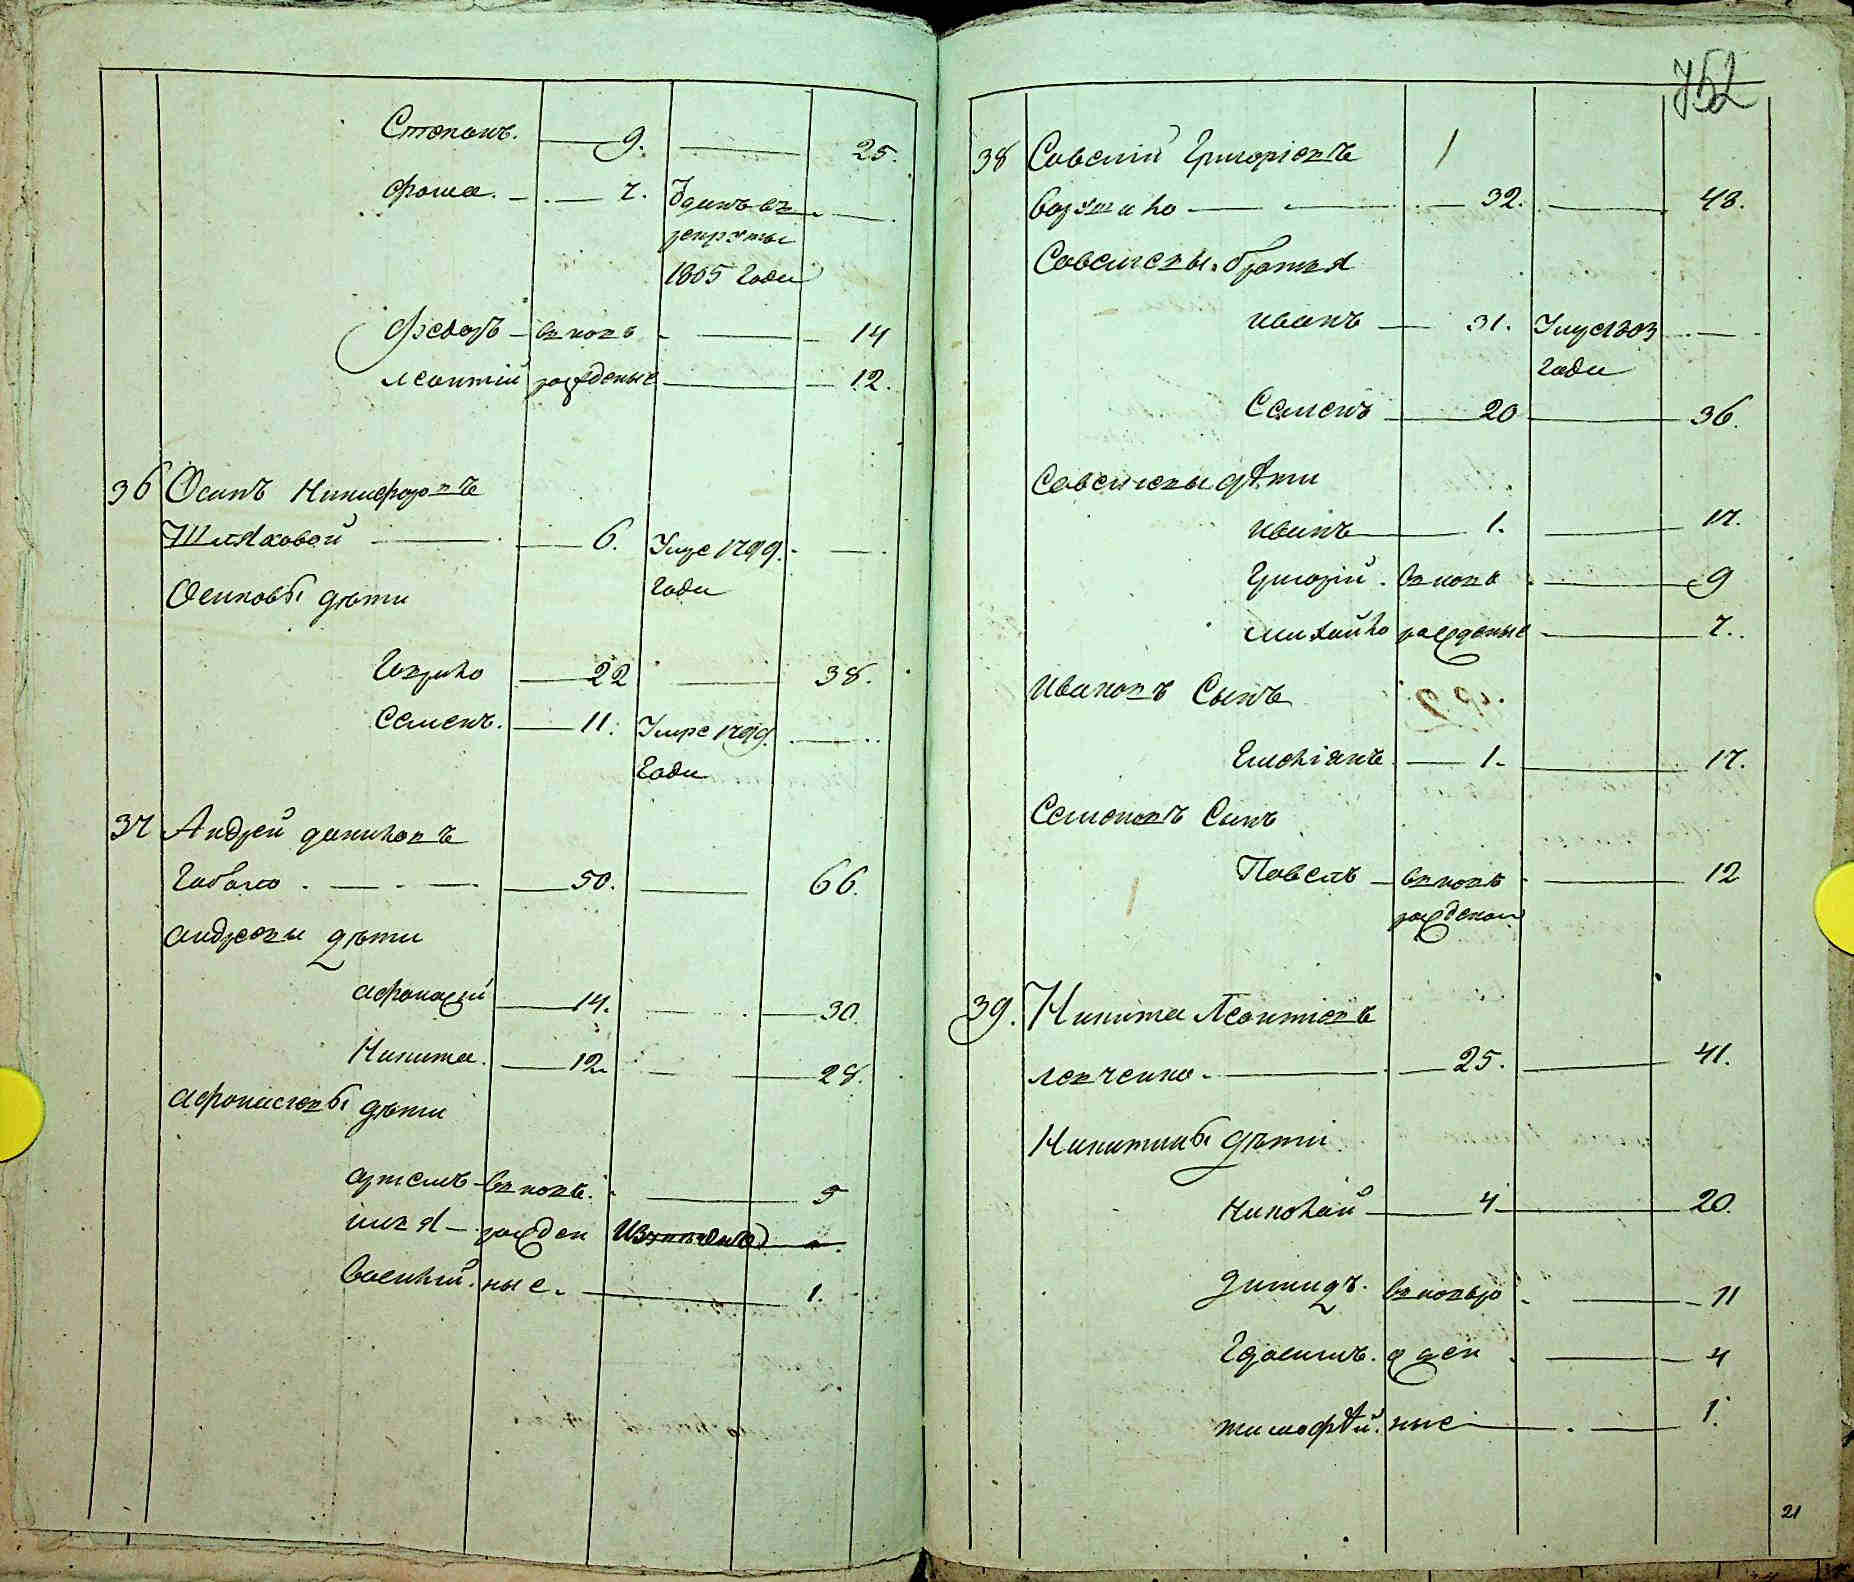 Степанъ. 9. 25.
Фома. 7. Зданъ въ
рекруты
1805 Года
Федоръ вновь 14
Леонтий рожденые 12.
36 Осипъ Никифоровъ
Шляховой 6. Умре 1799.
Года
Осиповы дѣти
Гаврило 22 38.
Семенъ. 11. Умре 1799.
Года
37 Андрей даниловъ
50. 66.
андреевы дѣти
афонасей 14. 30.
Никита. 12. 28.
афонасиевы дѣти
артемъ вновь. 5
илья рожден
Василий. ные. 1.
752
38 Савелий Григориевъ
32. 48.
Савелиевы братья
иванъ 31. Умре 1803
Года
Семенъ 20 36.
Савелиевы дѣти
иванъ 1. 17.
Григорий. вновь 9
михайло рожденые 7.
ивановъ Сынъ
Емелианъ 1. 17.
Семеновъ Сынъ
Павелъ вновь 12
рожденой
39. Никита Леонтиевъ
левченко. 25. 41.
Никитины дѣти
Николай 4 20.
Демидъ. вновь ро 11
Герасимъ. жден 4
тимофѣй. ные 1.
21